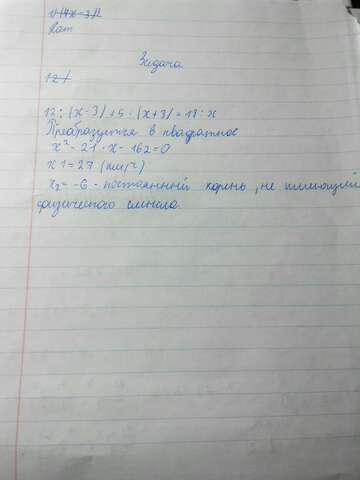 Задача
12 : (x-3) + 5 : (x+3) = 18 : x
Преобразуется в квадратное
x² - 21 · x - 162 = 0
x1 = 27 (км/ч)
x₂ = -6 - постаянный корень, не имеющий
физического смысла